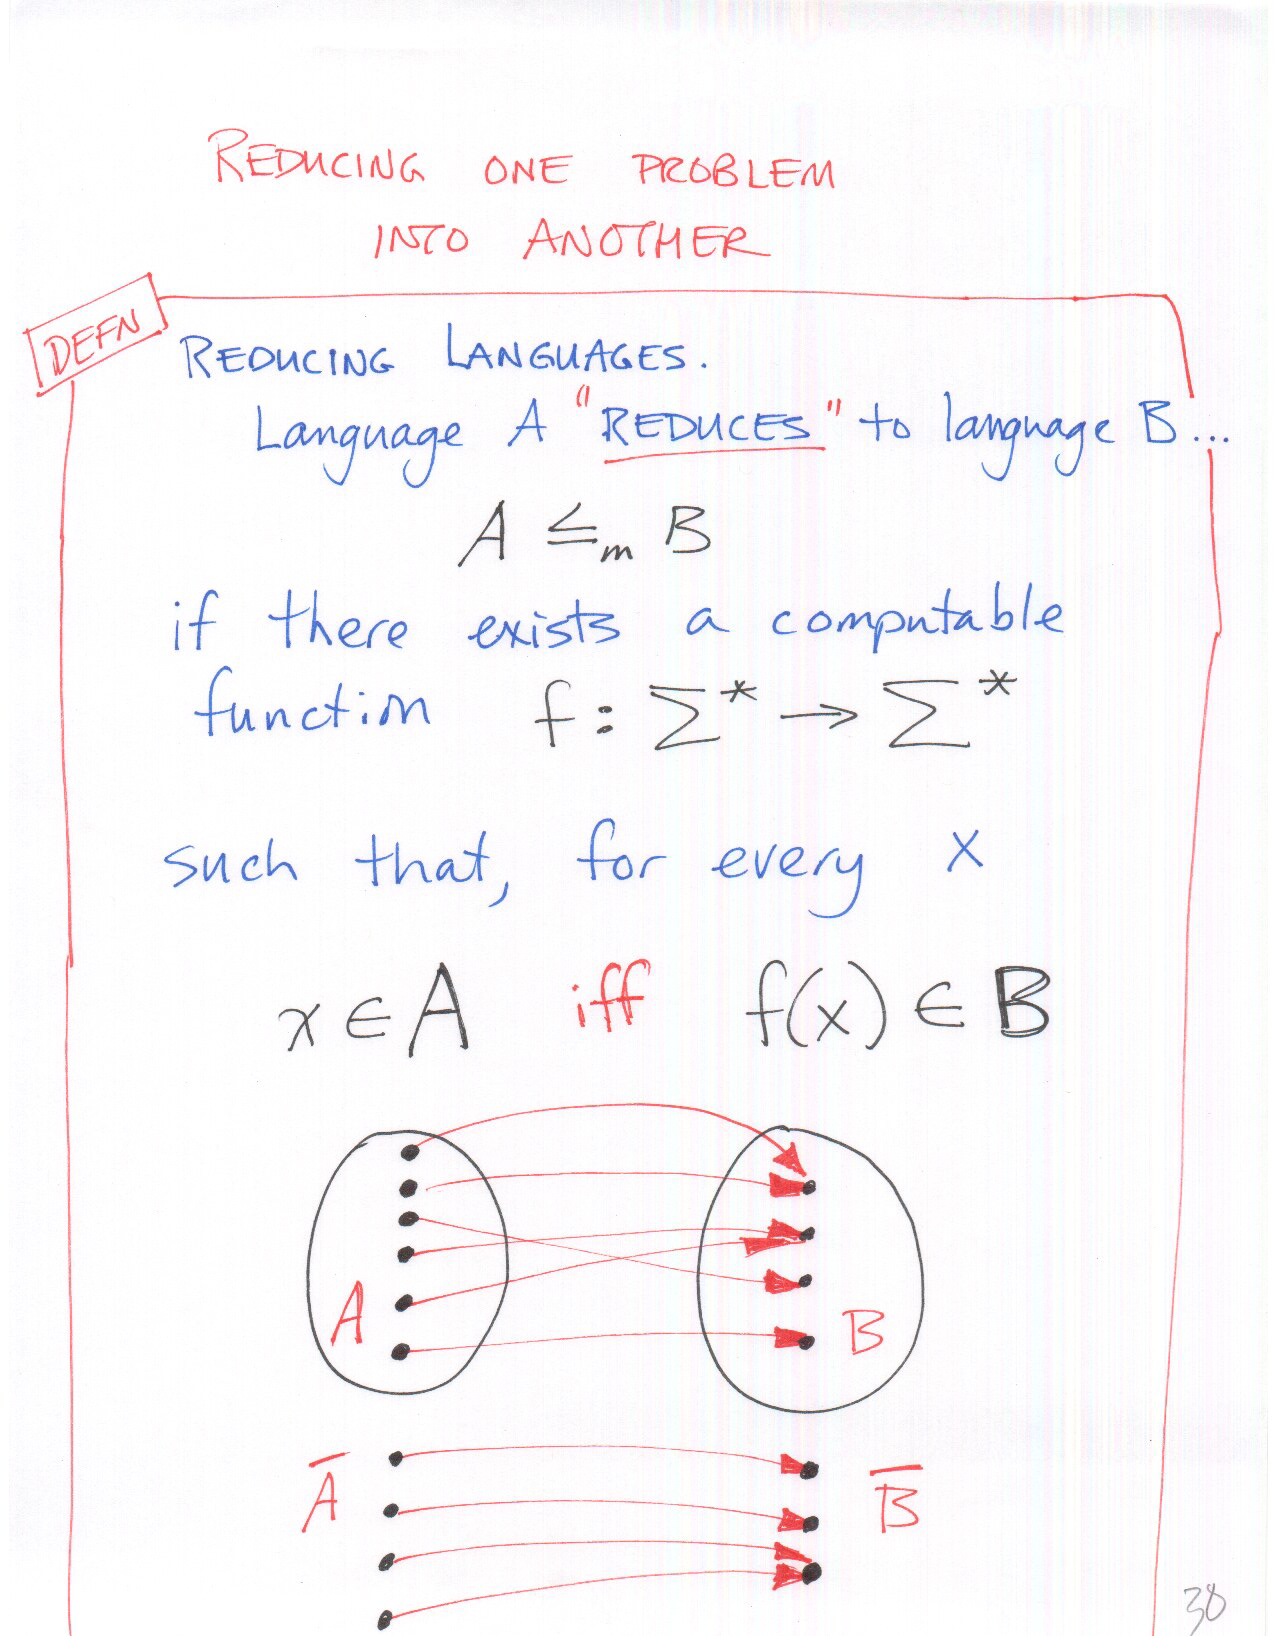 REDUCING ONE PROBLEM
INTO ANOTHER
DEFN
REDUCING LANGUAGES.
Language A "REDUCES" to language B...
A ≤m B
if there exists a computable
function f: Σ* → Σ*
such that, for every x
x ∈ A iff f(x) ∈ B
A B
A̅ B̅
38